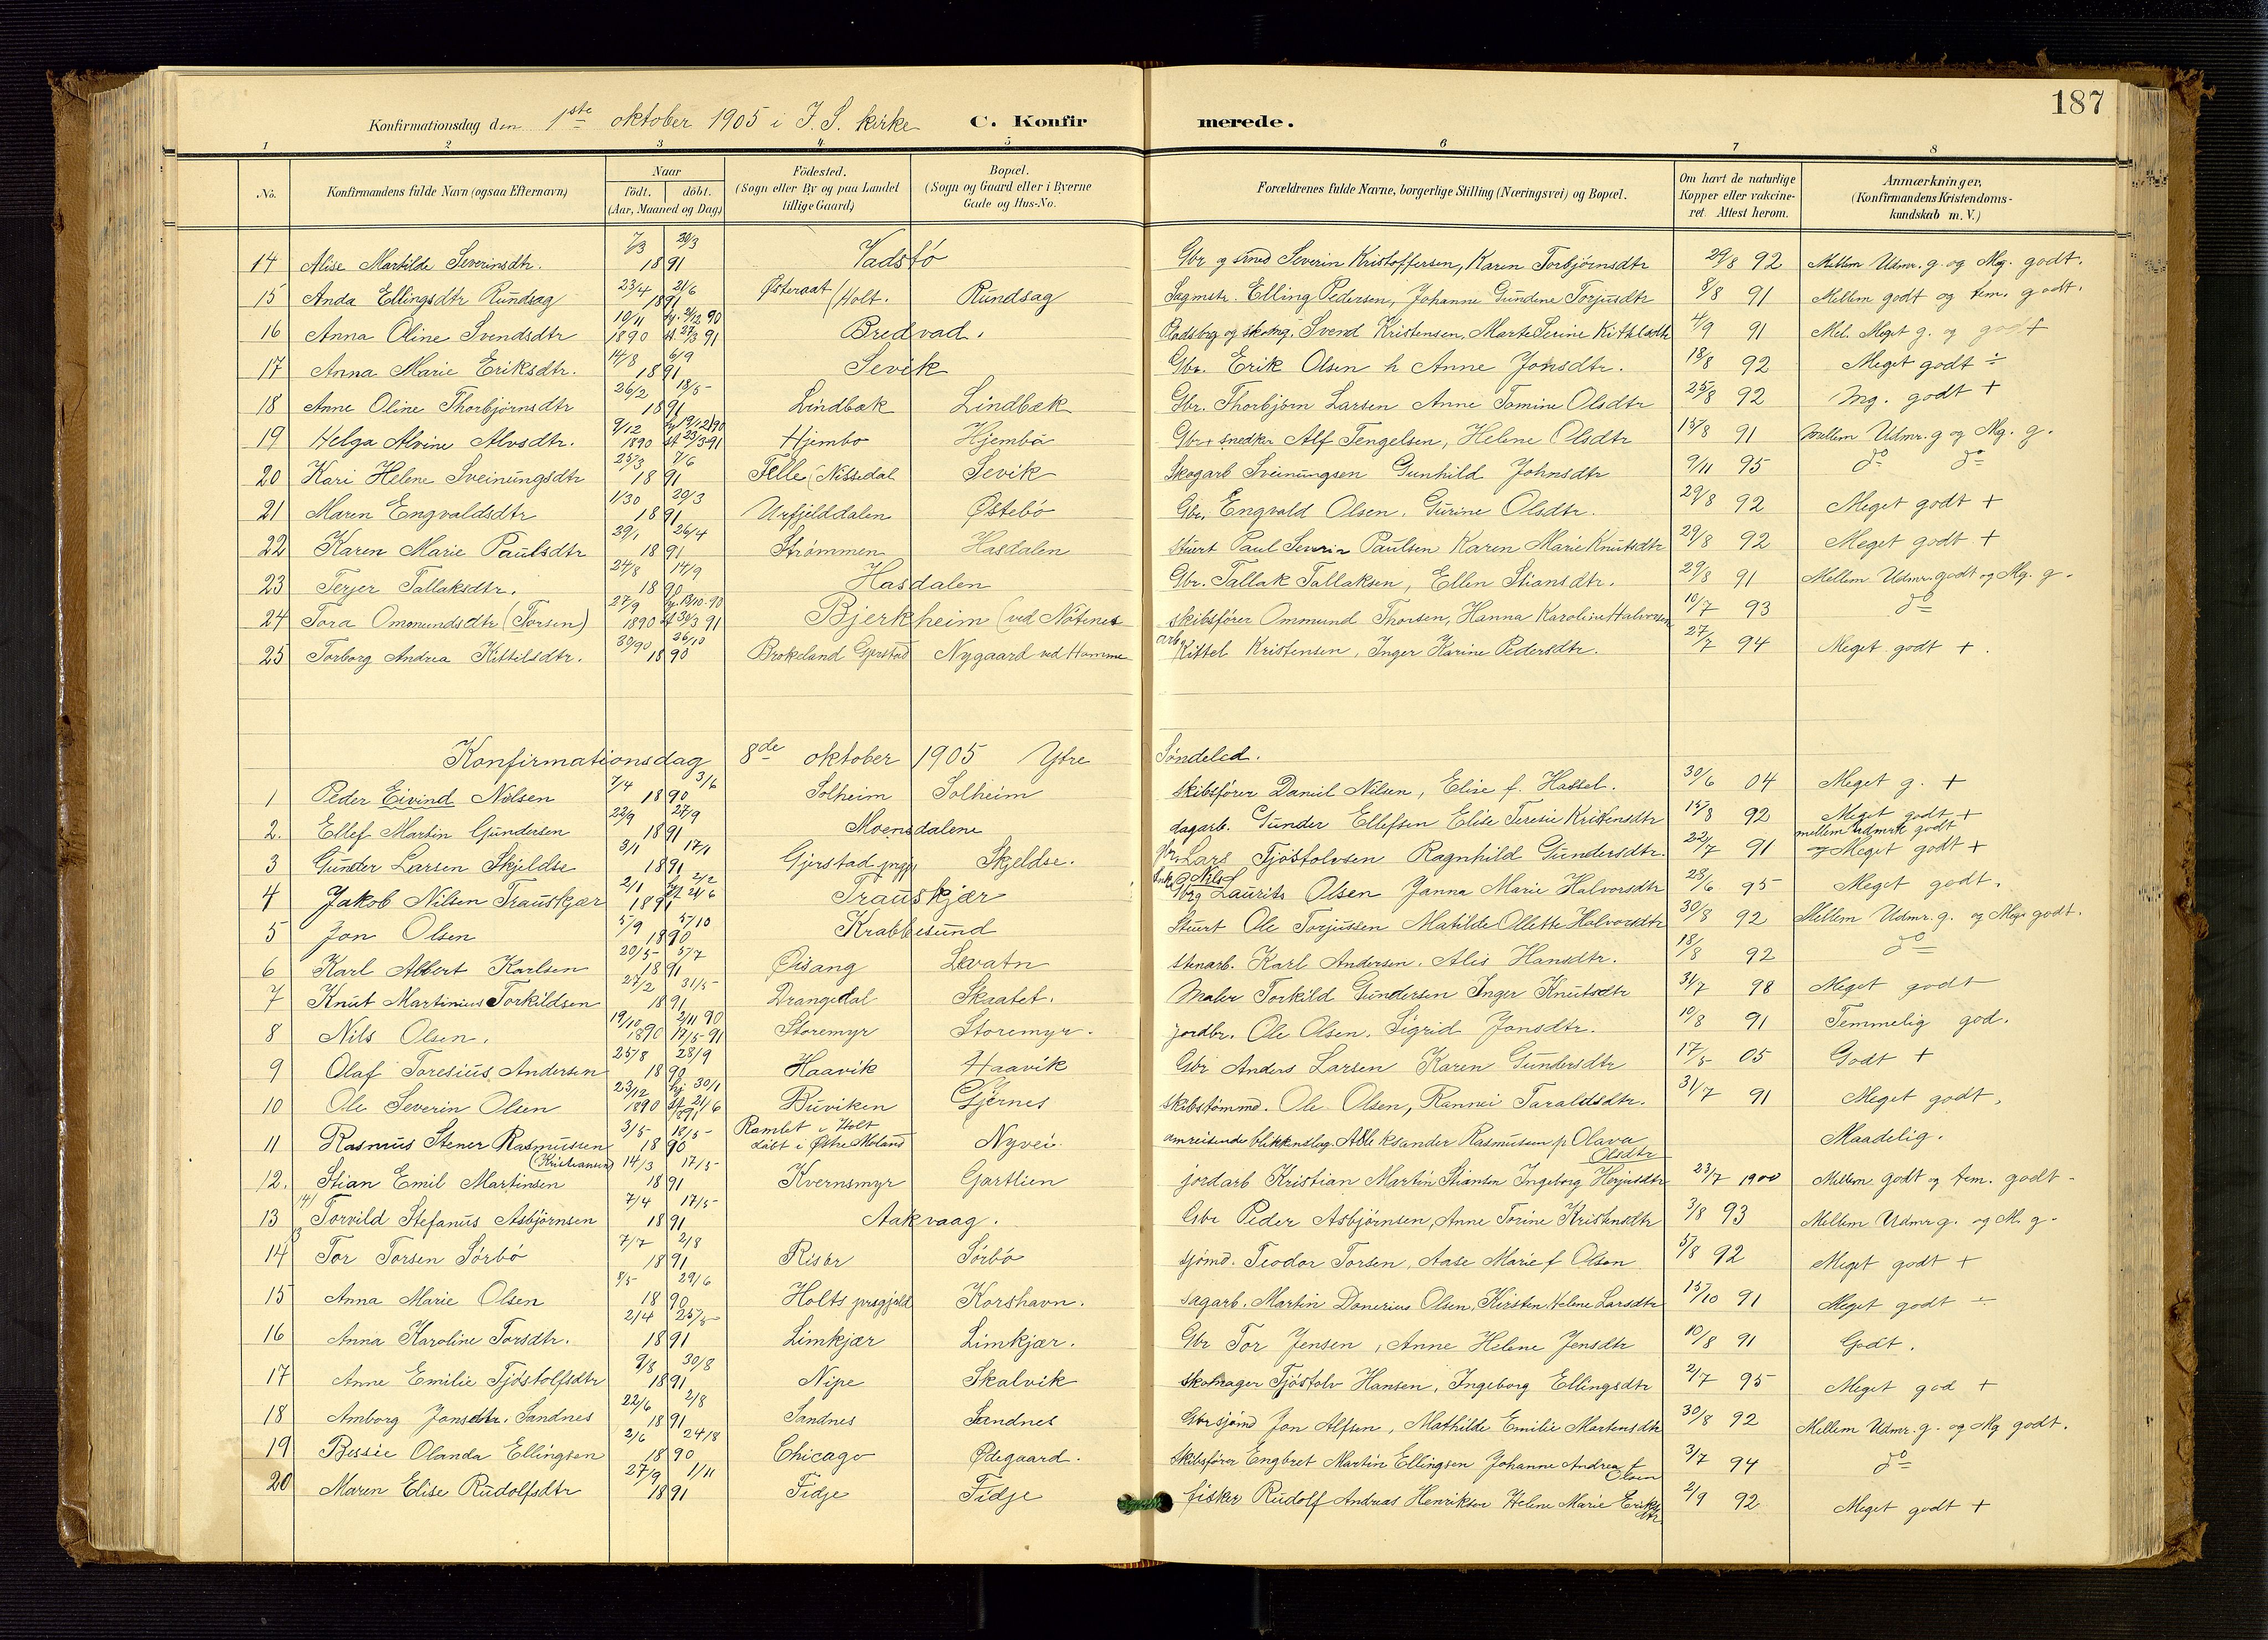 187
Konfirmationsdag den 1ste oktober 1905 i I. S. kirke C. Konfirmerede.
1 2 3 4 5 6 7 8
No. Konfirmandens fulde Navn (ogsaa Efternavn) Naar födt. döbt. (Aar, Maaned og Dag) Födested. (Sogn eller By og paa Landet tillige Gaard) Bopæl. (Sogn og Gaard eller i Byerne Gade og Hus-No. Forældrenes fulde Navne, borgerlige Stilling (Næringsvei) og Bopæl. Om havt de naturlige Kopper eller vaccineret. Attest herom. Anmærkninger, (Konfirmandens Kristendomskundskab m. V.)
14 Alise Martilde Severinsdtr. 7/3 30/3 1891 Vadstö Gbr og smed Severin Kristoffersen, Karen Torbjörnsdtr 29/8 92 Mellem Udmr. g. og Mg. godt.
15 Anda Ellingsdtr Rundsag 23/4 21/6 1891 Østeraat (Holt. Rundsag Sagmstr. Elling Pedersen, Johanne Gundine Torjusdtr 8/8 91 Mellem godt og tem. godt.
16 Anna Oline Svendsdtr 10/11 1890 hj. 2/12 90 st. 27/3 91 Bredvad. Pladsbrg og skomg. Svend Kristensen, Marte Serine Kittilsdtr 4/9 91 Mel. Meget g. og godt
17 Anna Marie Eriksdtr. 14/8 6/9 1891 Sevik Gbr. Erik Olsen h Anne Jonsdtr. 18/8 92 Meget godt ÷
18 Anne Oline Thorbjörnsdtr 26/2 18/5 1891 Lindbæk Lindbæk Gbr. Thorbjörn Larsen Anne Tomine Olsdtr 25/8 92 Mg. godt +
19 Helga Alvine Alvsdtr. 9/12 1890 hj 19/12 90 st 23/3 91 Hjembo Hjembö Gbr + snedker Alf Tengelsen, Helene Olsdtr 15/8 91 Mellem Udmr. g og Mg. g.
20 Kari Helene Sveinungsdtr 25/3 7/6 1891 Felle (Nissedal Sevik Skogarb Sveinungsen Gunhild Johnsdtr 9/11 95 do do
21 Maren Engvaldsdtr 1/30 29/3 1891 Urfjelddalen Østebö Gbr. Engvald Olsen. Gurine Olsdtr. 29/8 92 Meget godt +
22 Karen Marie Paulsdtr 29/1 26/4 1891 Strömmen Hasdalen stuert Paul Severin Paulsen Karen Marie Knutsdtr 29/8 92 Meget godt +
23 Terjer Tallaksdtr. 24/8 14/9 1890 Hasdalen Gbr. Tallak Tallaksen, Ellen Stiansdtr. 29/8 91 Mellem Udmr. godt og Mg. g.
24 Tora Ommundsdtr (Torsen) 27/9 1890 hj. 13/10 90 st 30/3 91 Bjerkheim (ved Nötenes skibsförer Ommund Thorsen, Hanna Karoline Halvorsen 10/7 93 do
25 Torborg Andrea Kittilsdtr. 26/10 1890 Brokeland Gjerstad Nygaard ved Hamme arb. Kittel Kristensen, Inger Karine Pedersdtr. 27/7 94 Meget godt +.
Konfirmationsdag 8de oktober 1905 Ytre Söndeled.
1 Peder Eivind Nilsen 7/4 3/6 1890 Solheim Solheim skibsförer Daniel Nilsen, Elise f. Hassel. 30/6 04 Meget g. +
2. Ellef Martin Gundersen 22/9 27/9 1891 Moensdalene dagarb. Gunder Ellefsen Elise Teresie Kristensdtr 15/8 92 Meget godt +
3 Gunder Larsen Skjeldse 3/1 17/1 1891 Gjerstad prgj Skjeldse. Gbr. Lars Tjöstolvsen Ragnhild Gundersdtr. 22/7 91 mellem Udmrk godt og Meget godt +
4 Jakob Nilsen Trauskjær 2/1 1891 hj 2/2 st 21/6 Trauskjær Gbrg Nils Laurits Olsen Janna Marie Halvorsdtr 23/6 95 Meget godt.
5 Jon Olsen 5/9 5/10 1890 Krabbesund Stuert Ole Torjussen Matilde Ollette Halvorsdtr 30/8 92 Mellem Udmr. g. og Meget godt.
6 Karl Albert Karlsen 20/5 5/7 1891 Øisang Levatn stenarb. Karl Andersen. Alis Hansdtr. 18/8 92 do
7 Knut Martinius Torkildsen 27/2 31/5 1891 Drangedal Skaatet. Maler Torkild Gundersen Inger Knutsdtr 31/7 98 Meget godt
8 Nils Olsen. 19/10 1890 2/11 90 17/5 91 Storemyr Storemyr. jordbr. Ole Olsen. Sigrid Jonsdtr. 10/8 91 Temmelig god.
9 Olaf Toresius Andersen 25/8 28/9 1890 Haavik Haavik Gbr Anders Larsen Karen Gundersdtr 17/5 05 Godt +
10 Ole Severin Olsen 23/12 1890 hj 30/1 st 21/6 1891 Buviken Gjernes skibstömmd. Ole Olsen, Rannei Taraldsdtr. 31/7 91 Meget godt.
11 Rasmus Stener Rasmussen (Kristiansen) 3/5 18/5 1890 Ramlet i Holt döbt i Østre Moland Nyvei omreisende blikkenslag. Aleksander Rasmusen p Olava Olsdtr Maadelig.
12. Stian Emil Martinsen 14/3 17/5 1891 Kvernsmyr Gartlien jordarb Kristian Martin Stiansen Ingeborg Herjusdtr 23/7 1900 Mellem godt og tem. godt
13 Torvild Stefanus Asbjörnsen 7/4 17/5 1891 Aakvaag. Gbr Peder Asbjörnsen, Anne Torine Kristensdtr 3/8 93 Mellem Udmr g. og M. g.
14 Tor Torsen Sörbö 7/7 2/8 1891 Risör Sörbö sjömd. Teodor Torsen, Aase Marie f Olsen 5/8 92 Meget godt +
15 Anna Marie Olsen 8/5 29/6 1890 Holts prsgjeld Korshavn. sagarb. Martin Donerius Olsen, Kirsten Helene Larsdtr 15/10 91 Meget godt ÷
16 Anna Karoline Torsdtr. 2/4 25/5 1891 Limkjær Limkjær. Gbr Tor Jensen, Anne Helene Jensdtr 10/8 91 Godt.
17 Anne Emilie Tjöstolfsdtr 9/8 30/8 1891 Nipe Skalvik skomager Tjöstolv Hansen, Ingeborg Ellingsdtr 2/7 95 Meget god +
18 Amborg Jonsdtr. Sandnes 22/6 2/8 1891 Sandnes Sandnes Gbr sjömd Jon Alfsen, Mathilde Emilie Martensdtr 30/8 92 Mellem Udmr. g. og Mg godt.
19 Bessie Olanda Ellingsen 2/6 24/8 1890 Chicago Ødegaard. Skibsförer Engbret Martin Ellingsen Johanne Andrea f Olsen 3/7 94 do
20 Maren Elise Rudolfsdtr 27/9 1/11 1891 Fidje Fidje fisker Rudolf Andreas Henriksen Helene Marie Eriksdtr 2/9 92 Meget godt +